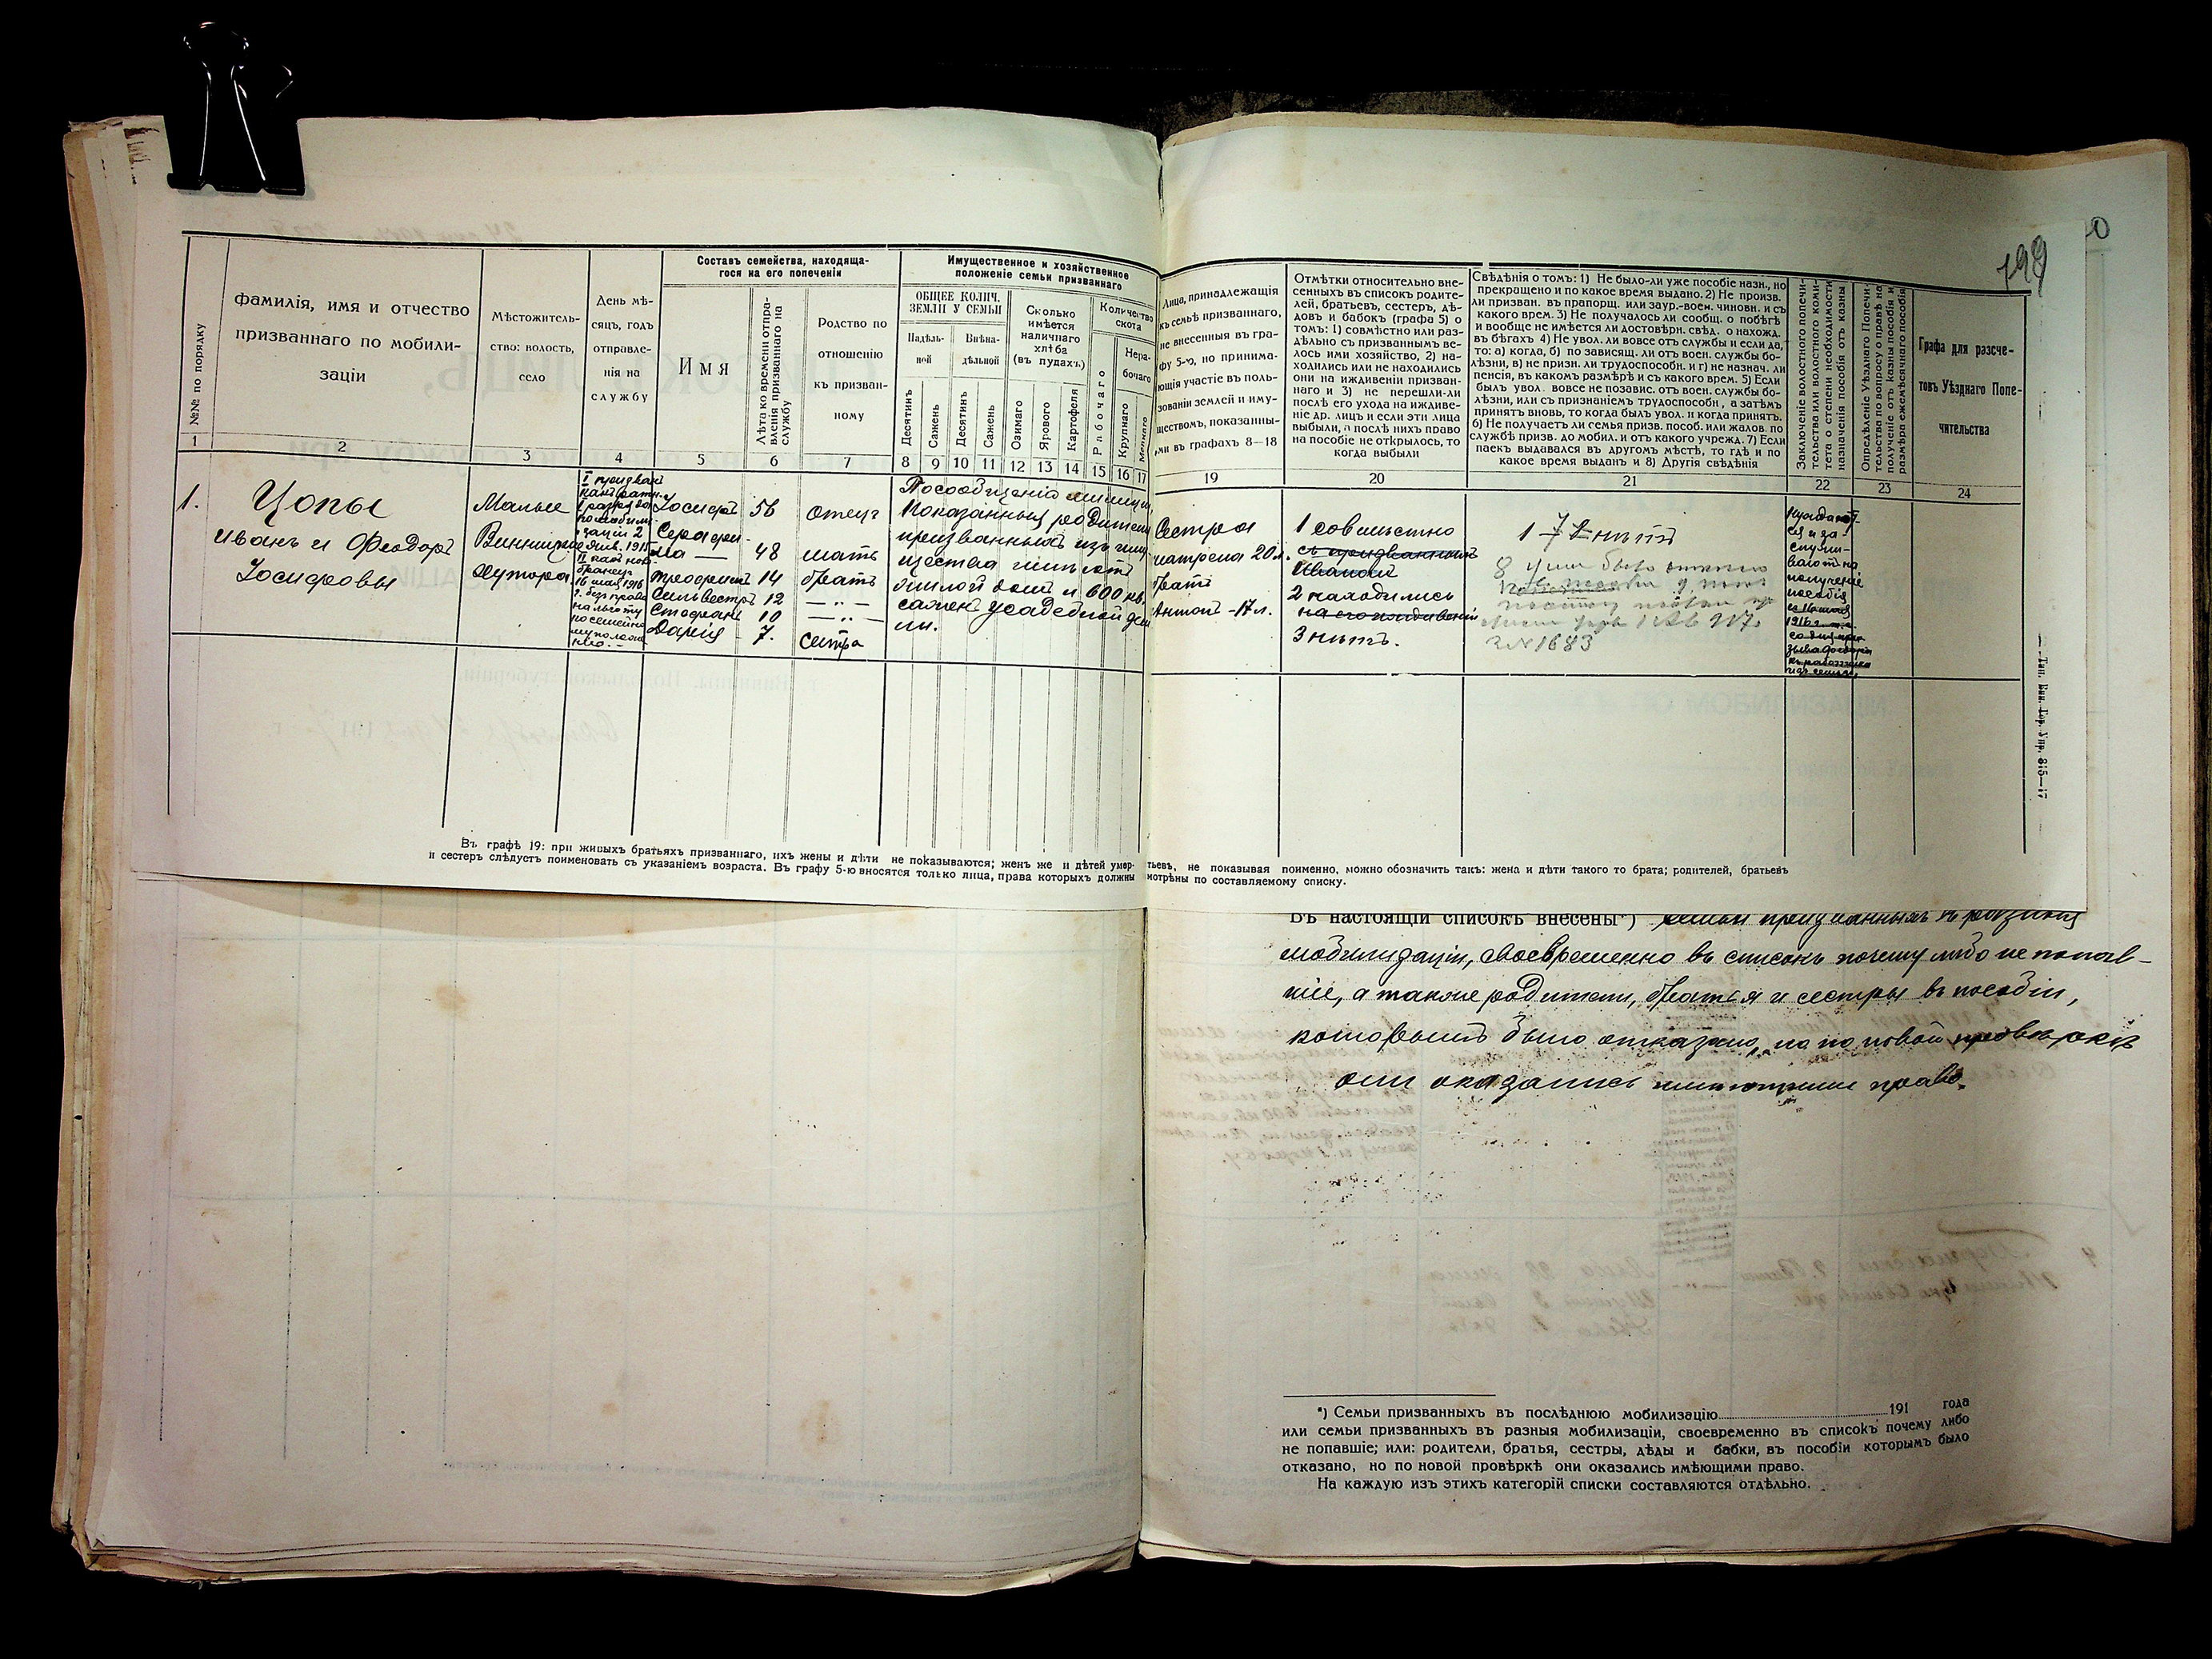 199
№№ по порядку
фамилія, имя и отчество
призваннаго по мобили-
заціи
Мѣстожитель-
ство: волость,
село
День мѣ-
сяцъ, годъ
отправле-
нія на
службу
Составъ семейства, находяща-
гося на его попеченіи
Имя
Лѣта ко времени отпра-
вленія призваннаго на
службу
Родство по
отношенію
къ призван-
ному
Имущественное и хозяйственное
положеніе семьи призваннаго
ОБЩЕЕ КОЛИЧ.
ЗЕМЛИ У СЕМЬИ
Надѣль-
ной
Внѣна-
дѣльной
Десятинъ
Сажень
Десятинъ
Сажень
Сколько
имѣется
наличнаго
хлѣба
(въ пудахъ)
Озимаго
Ярового
Картофеля
Количество
скота
Рабочаго
Нера-
бочаго
Крупнаго
Мелкаго
Лица, принадлежащія
къ семьѣ призваннаго,
не внесенныя въ гра-
фу 5-ю, но принима-
ющія участіе въ поль-
зованіи землей и иму-
ществомъ, показанны-
ми въ графахъ 8—18
Отмѣтки относительно вне-
сенныхъ въ списокъ родите-
лей, братьевъ, сестеръ, дѣ-
довъ и бабокъ (графа 5) о
томъ: 1) совмѣстно или раз-
дѣльно съ призваннымъ ве-
лось ими хозяйство, 2) на-
ходились или не находились
они на иждивеніи призван-
наго и 3) не перешли-ли
послѣ его ухода на иждиве-
ніе др. лицъ и если эти лица
выбыли, а послѣ нихъ право
на пособіе не открылось, то
когда выбыли
Свѣдѣнія о томъ: 1) Не было-ли уже пособіе назн., но
прекращено и по какое время выдано. 2) Не произв.
ли призван. въ прапорщ. или заур.-воен. чиновн. и съ
какого врем. 3) Не получалось ли сообщ. о побѣгѣ
и вообще не имѣется ли достовѣрн. свѣд. о нахожд.
въ бѣгахъ 4) Не увол. ли вовсе отъ службы и если да,
то: а) когда, б) по зависящ. ли отъ воен. службы бо-
лѣзни, в) не призн. ли трудоспособн. и г) не назнач. ли
пенсія, въ какомъ размѣрѣ и съ какого врем. 5) Если
былъ увол. вовсе не позавис. отъ воен. службы бо-
лѣзни, или съ признаніемъ трудоспособн, а затѣмъ
принятъ вновь, то когда былъ увол. и когда принятъ.
6) Не получаетъ ли семья призв. пособ. или жалов. по
службѣ призв. до мобил. и отъ какого учрежд. 7) Если
паекъ выдавался въ другомъ мѣстѣ, то гдѣ и по
какое время выданъ и 8) Другія свѣдѣнія
Заключеніе волостного попечи-
тельства или волостного коми-
тета о степени необходимости
назначенія пособія отъ казны
Опредѣленіе Уѣзднаго Попечи-
тельства по вопросу о правѣ на
полученіе отъ казны пособія и
размѣра ежемѣсячнаго пособія
Графа для разсче-
товъ Уѣзднаго Попе-
чительства
1 2 3 4 5 6 7 8 9 10 11 12 13 14 15 16 17 19 20 21 22 23 24
1.
Цопы
Иванъ и Феодоръ
Іосифовы
Малые
Винницкіе
Хутора
I призванъ
2 Янв. 1915
16 мая 1916
Іосифъ 56 отецъ
Серафи-
ма — 48 мать
Трофимъ 14 братъ
Сильвестръ 12 — „ —
Стефанъ 10 — „ —
Дарія 7. сестра
По сообщенію милиціи,
показанныя родители
призванныхъ изъ иму-
щества имѣютъ
жилой домъ и 600 кв.
сажень усадебной зем
ли.
Сестра
Матрена 20 л.
братъ
Антонъ - 17 л.
1 совмѣстно
съ призваннымъ
Иваномъ
2 находились
на его иждивеніи
3 нѣтъ.
1-7 нѣтъ
8
№ 1683
Нуждают-
ся и за-
служи-
ваютъ на
полученіе
пособія
Тип. Вин. Гор. Упр. 815—17
Въ графѣ 19: при живыхъ братьяхъ призваннаго, ихъ жены и дѣти не показываются; женъ же и дѣтей умер- тьевъ, не показывая поименно, можно обозначить такъ: жена и дѣти такого то брата; родителей, братьевъ
и сестеръ слѣдуетъ поименовать съ указаніемъ возраста. Въ графу 5-ю вносятся только лица, права которыхъ должны мотрѣны по составляемому списку.
Въ настоящій списокъ внесены*) семьи призванныхъ въ разныя
мобилизаціи, своевременно въ списокъ почему либо не попав-
шіе, а также родители, братья и сестры въ пособіи,
которымъ было отказано, но по новой провѣркѣ
они оказались имѣющими право.
*) Семьи призванныхъ въ послѣднюю мобилизацію 191 года
или семьи призванныхъ въ разныя мобилизаціи, своевременно въ списокъ почему либо
не попавшіе; или: родители, братья, сестры, дѣды и бабки, въ пособіи которымъ было
отказано, но по новой провѣркѣ они оказались имѣющими право.
На каждую изъ этихъ категорій списки составляются отдѣльно.